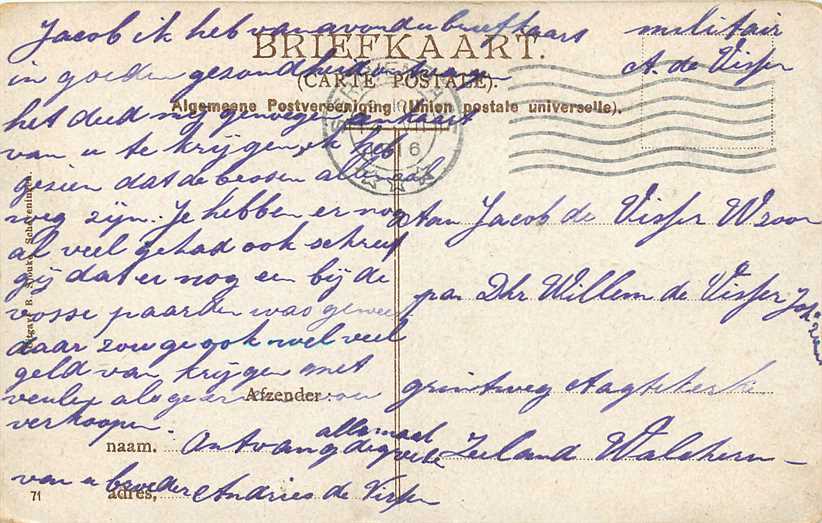 Jacob ik heb van avond u briefkaars
in goeden gezondheid
het deed mij genoegen een kaart
van u te krijgen ik heb
gezien dat de bessen allemaal
weg zijn. Je hebben er nog
al veel gehad ook schreef
gij dat er nog een bij de
vosse paarden was
daar zou ge ook wel veel
geld van krijgen met
veulen als ge er een
verkoopen.
Ontvang allemaal de groete
van u broeder Andries de Visser
militair
A. de Visser
BRIEFKAART.
(CARTE POSTALE.)
Algemeene Postvereeniging (Union postale universelle).
16
Aan Jacob de Visser Wzoon
pa Dhr Willem de Visser
grintweg Aagtekerke
Zeeland Walchern
Afzender:
naam.
adres,
71
Uitgave R. Sjouke, Scheveningen.